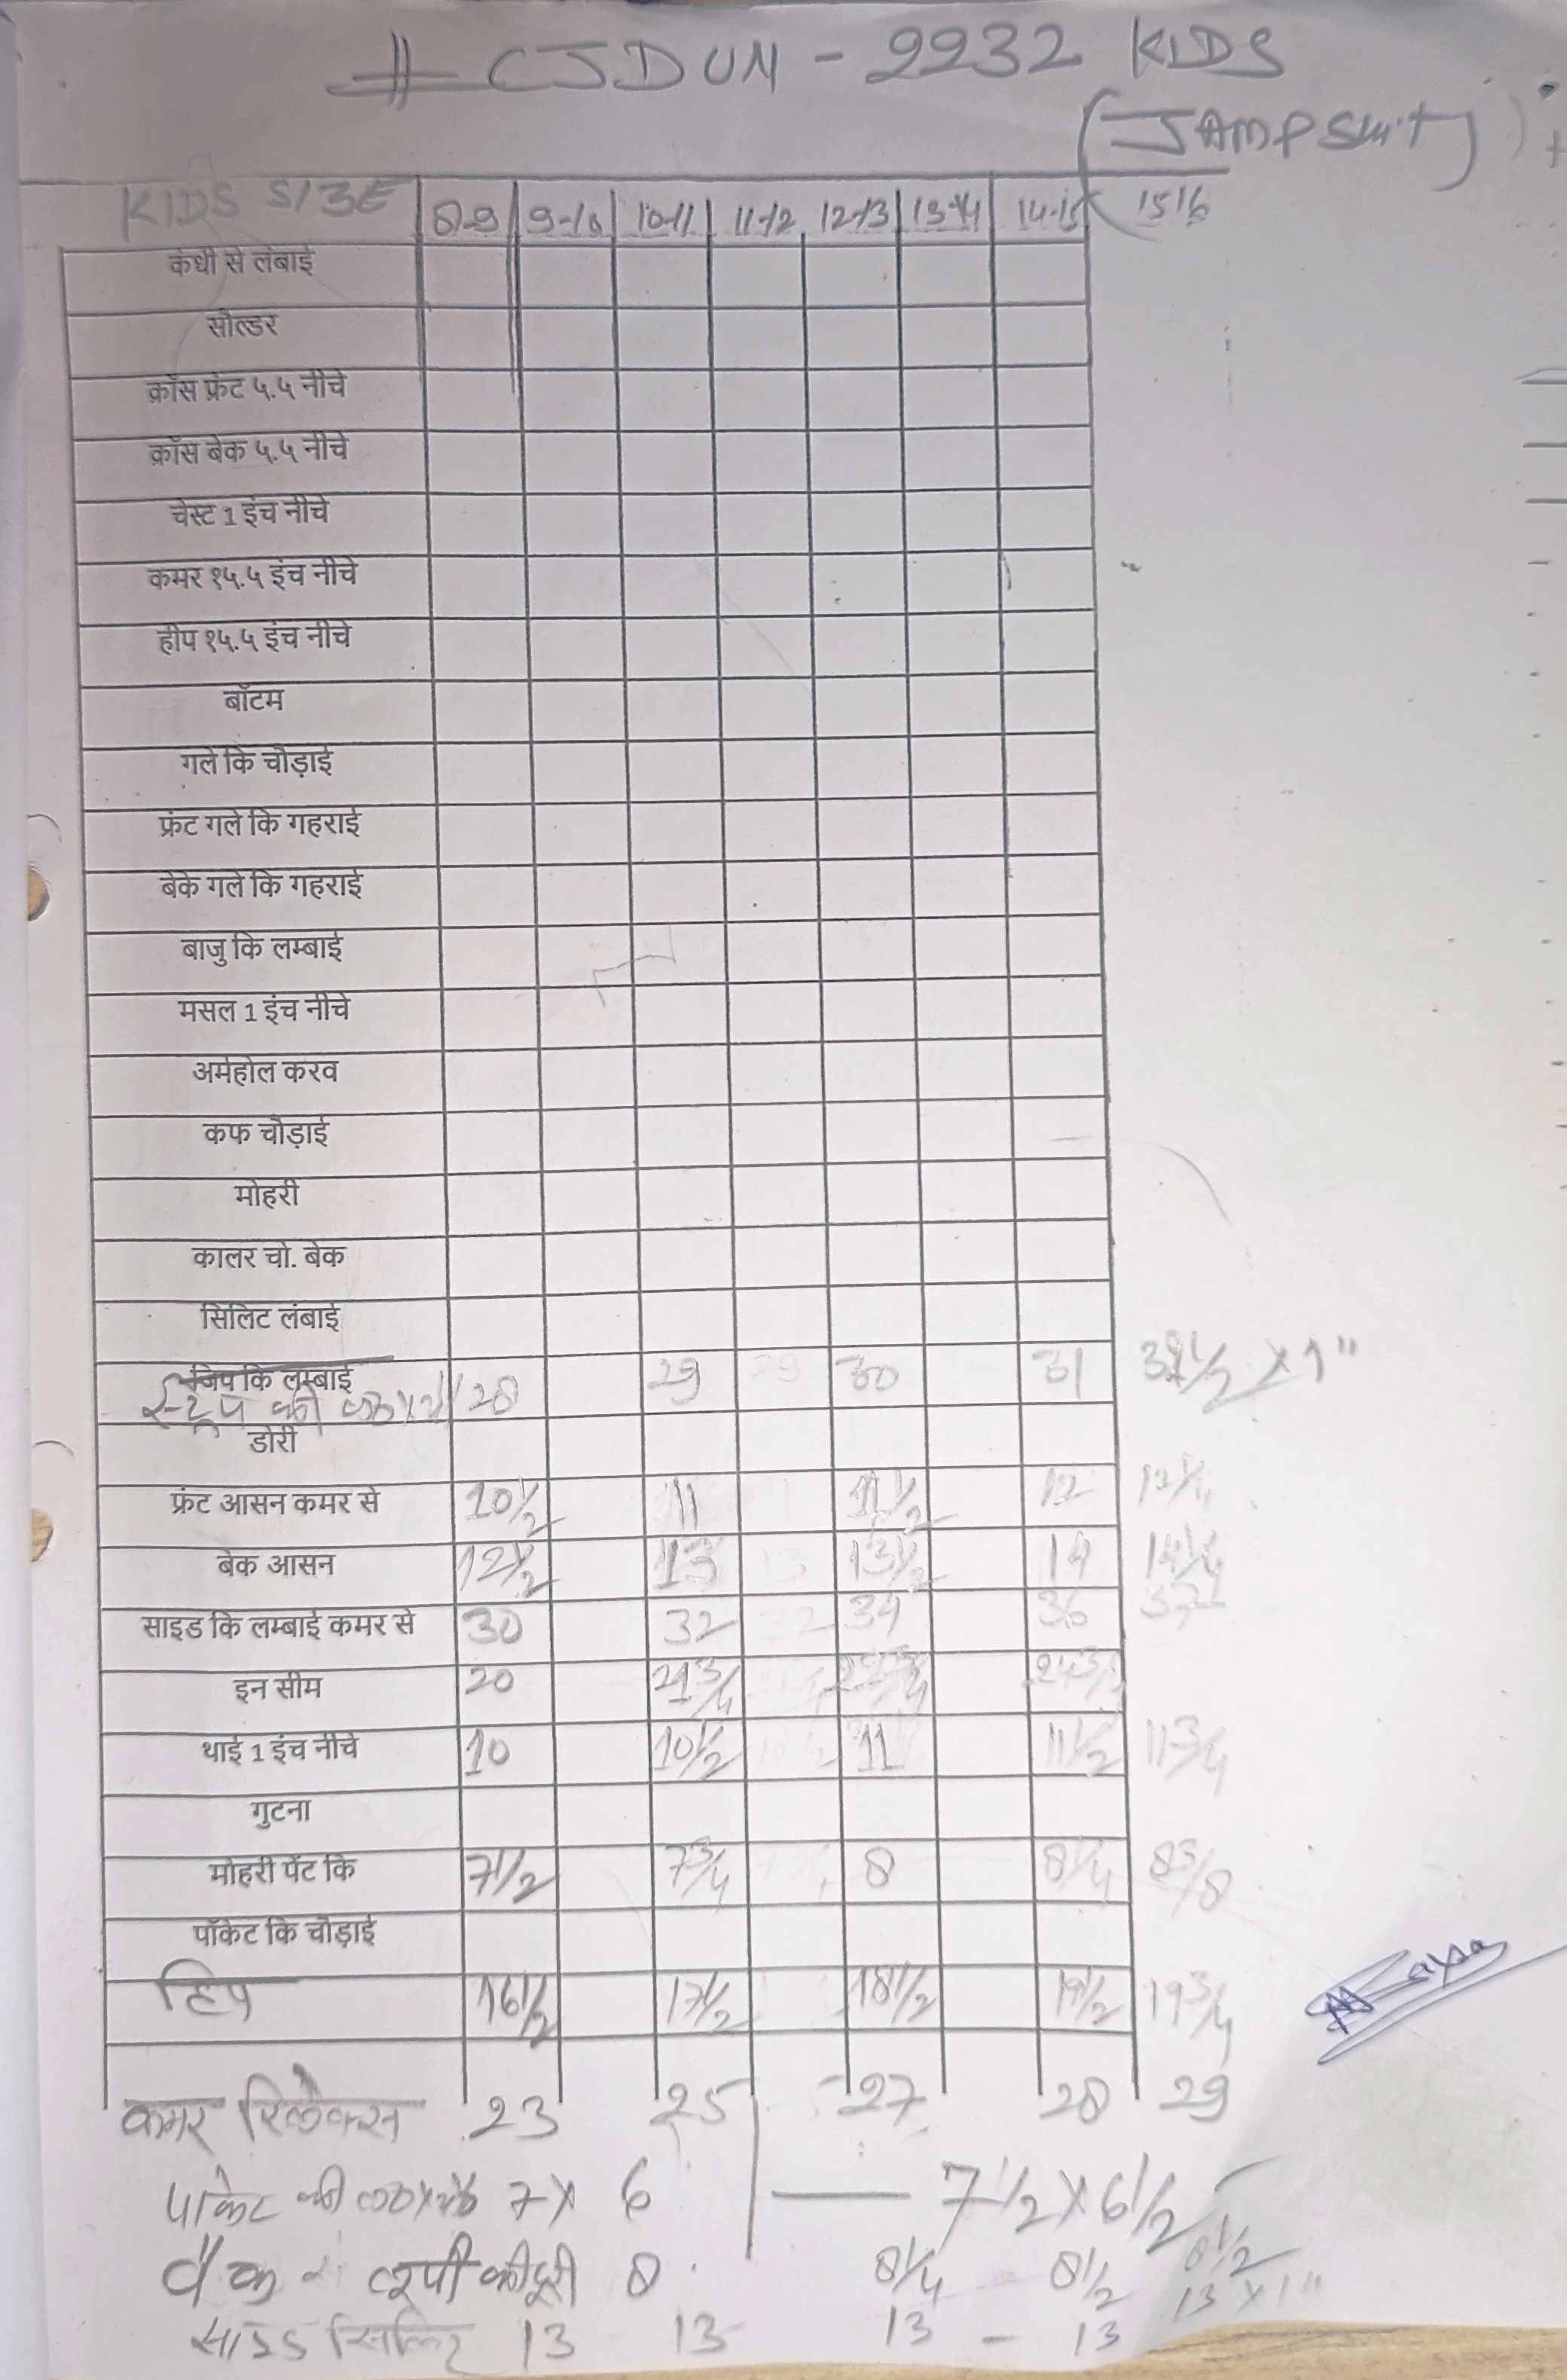 # CJDUN - 2232 KIDS
(JAMPSUIT)
KIDS SIZE 8-9 9-10 10-11 11-12 12-13 13-14 14-15 15 16
कंधी से लंबाई
सोल्डर
क्रॉस फ्रंट ५.५ नीचे
क्रॉस बेक ५.५ नीचे
चेस्ट 1 इंच नीचे
कमर १५.५ इंच नीचे
हीप १५.५ इंच नीचे
बॉटम
गले कि चौड़ाई
फ्रंट गले कि गहराई
बेके गले कि गहराई
बाजु कि लम्बाई
मसल 1 इंच नीचे
अर्महोल करव
कफ चौड़ाई
मोहरी
कालर चो. बेक
सिलिट लंबाई
जिप कि लम्बाई
स्ट्रैप की 28 29 29 30 31 32 1/2 x 1"
डोरी
फ्रंट आसन कमर से 10 1/2 11 11 11 1/2 12 12 1/4
बेक आसन 12 1/2 13 13 13 1/2 14 14 1/4
साइड कि लम्बाई कमर से 30 32 32 34 36 37
इन सीम 20 21 3/4 22 3/4 24 3/4
थाई 1 इंच नीचे 10 10 1/2 10 1/2 11 11 1/2 11 3/4
गुटना
मोहरी पेंट कि 7 1/2 7 3/4 8 8 1/4 8 3/8
पॉकेट कि चौड़ाई
हिप 16 1/2 17 1/2 18 1/2 19 1/2 19 3/4
कमर रिलेक्स 23 25 27 28 29
पाकेट की 7 x 6 — 7 1/2 x 6 1/2
बैक लूपी की दूरी 8 8 1/4 - 8 1/2 8 1/2
साइड सिलिट 13 13 13 - 13 13 x 1"